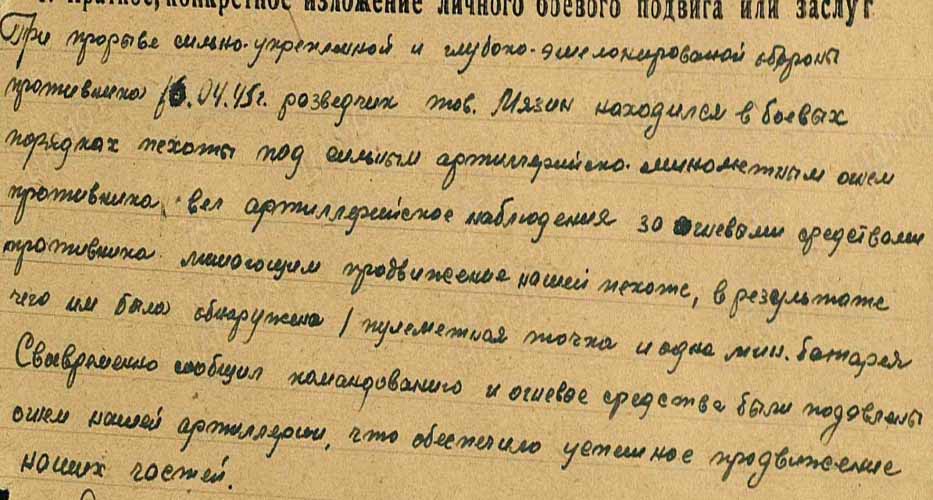 1. Краткое, конкретное изложение личного боевого подвига или заслуг
При прорыве сильно-укрепленной и глубоко-эшелонированой обороны
противника 16.04.45г. разведчик тов. Мязин находился в боевых
порядках пехоты под сильным артиллерийско-минометным огнем
противника, вел артиллерийское наблюдения за огневыми средствами
противника мешающим продвижение нашей пехоте, в результате
чего им была обнаружена 1 пулеметная точка и одна мин. батарея
Своевременно сообщил командованию и огневое средства были подавлены
огнем нашей артиллерии, что обеспечило успешное продвижение
наших частей.